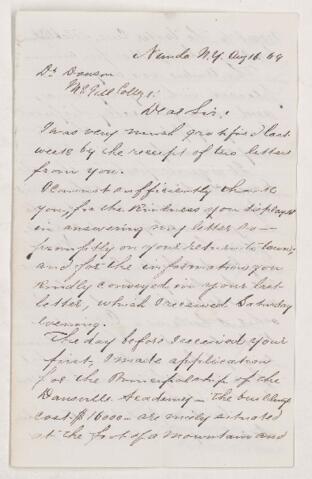 Nunda N.Y. Aug 16. 69
Dr Dawson
McGill College:
Dear Sir:
I was very much gratified last
week by the receipt of two letters
from you.
I cannot sufficiently thank
you, for the kindness you displayed
in answering my letter so—
promptly on your return to town;
and for the information you
kindly conveyed in your last
letter, which I received Saturday
evening.
The day before I received your
first, I made application
for the Principalship of the
Dansville Academy — The buildings
cost $16000 — are nicely situated
at the foot of a mountain and